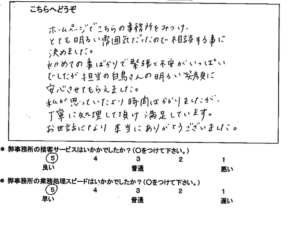 こちらへどうぞ
ホームページでこちらの事務所をみつけ、
とても明るい雰囲気だったので相談する事に
決めました。
初めての事ばかりで緊張と不安がいっぱい
でしたが担当の白鳥さんの明るい笑顔に
安心させてもらえました。
私が思っていたより時間はかかりましたが、
丁寧に処理して頂け満足しています。
お世話になり本当にありがとうございました。
● 弊事務所の接客サービスはいかがでしたか？（○をつけて下さい。）
5 4 3 2 1
良い 普通 悪い
● 弊事務所の業務処理スピードはいかがでしたか？（○をつけて下さい。）
5 4 3 2 1
早い 普通 遅い